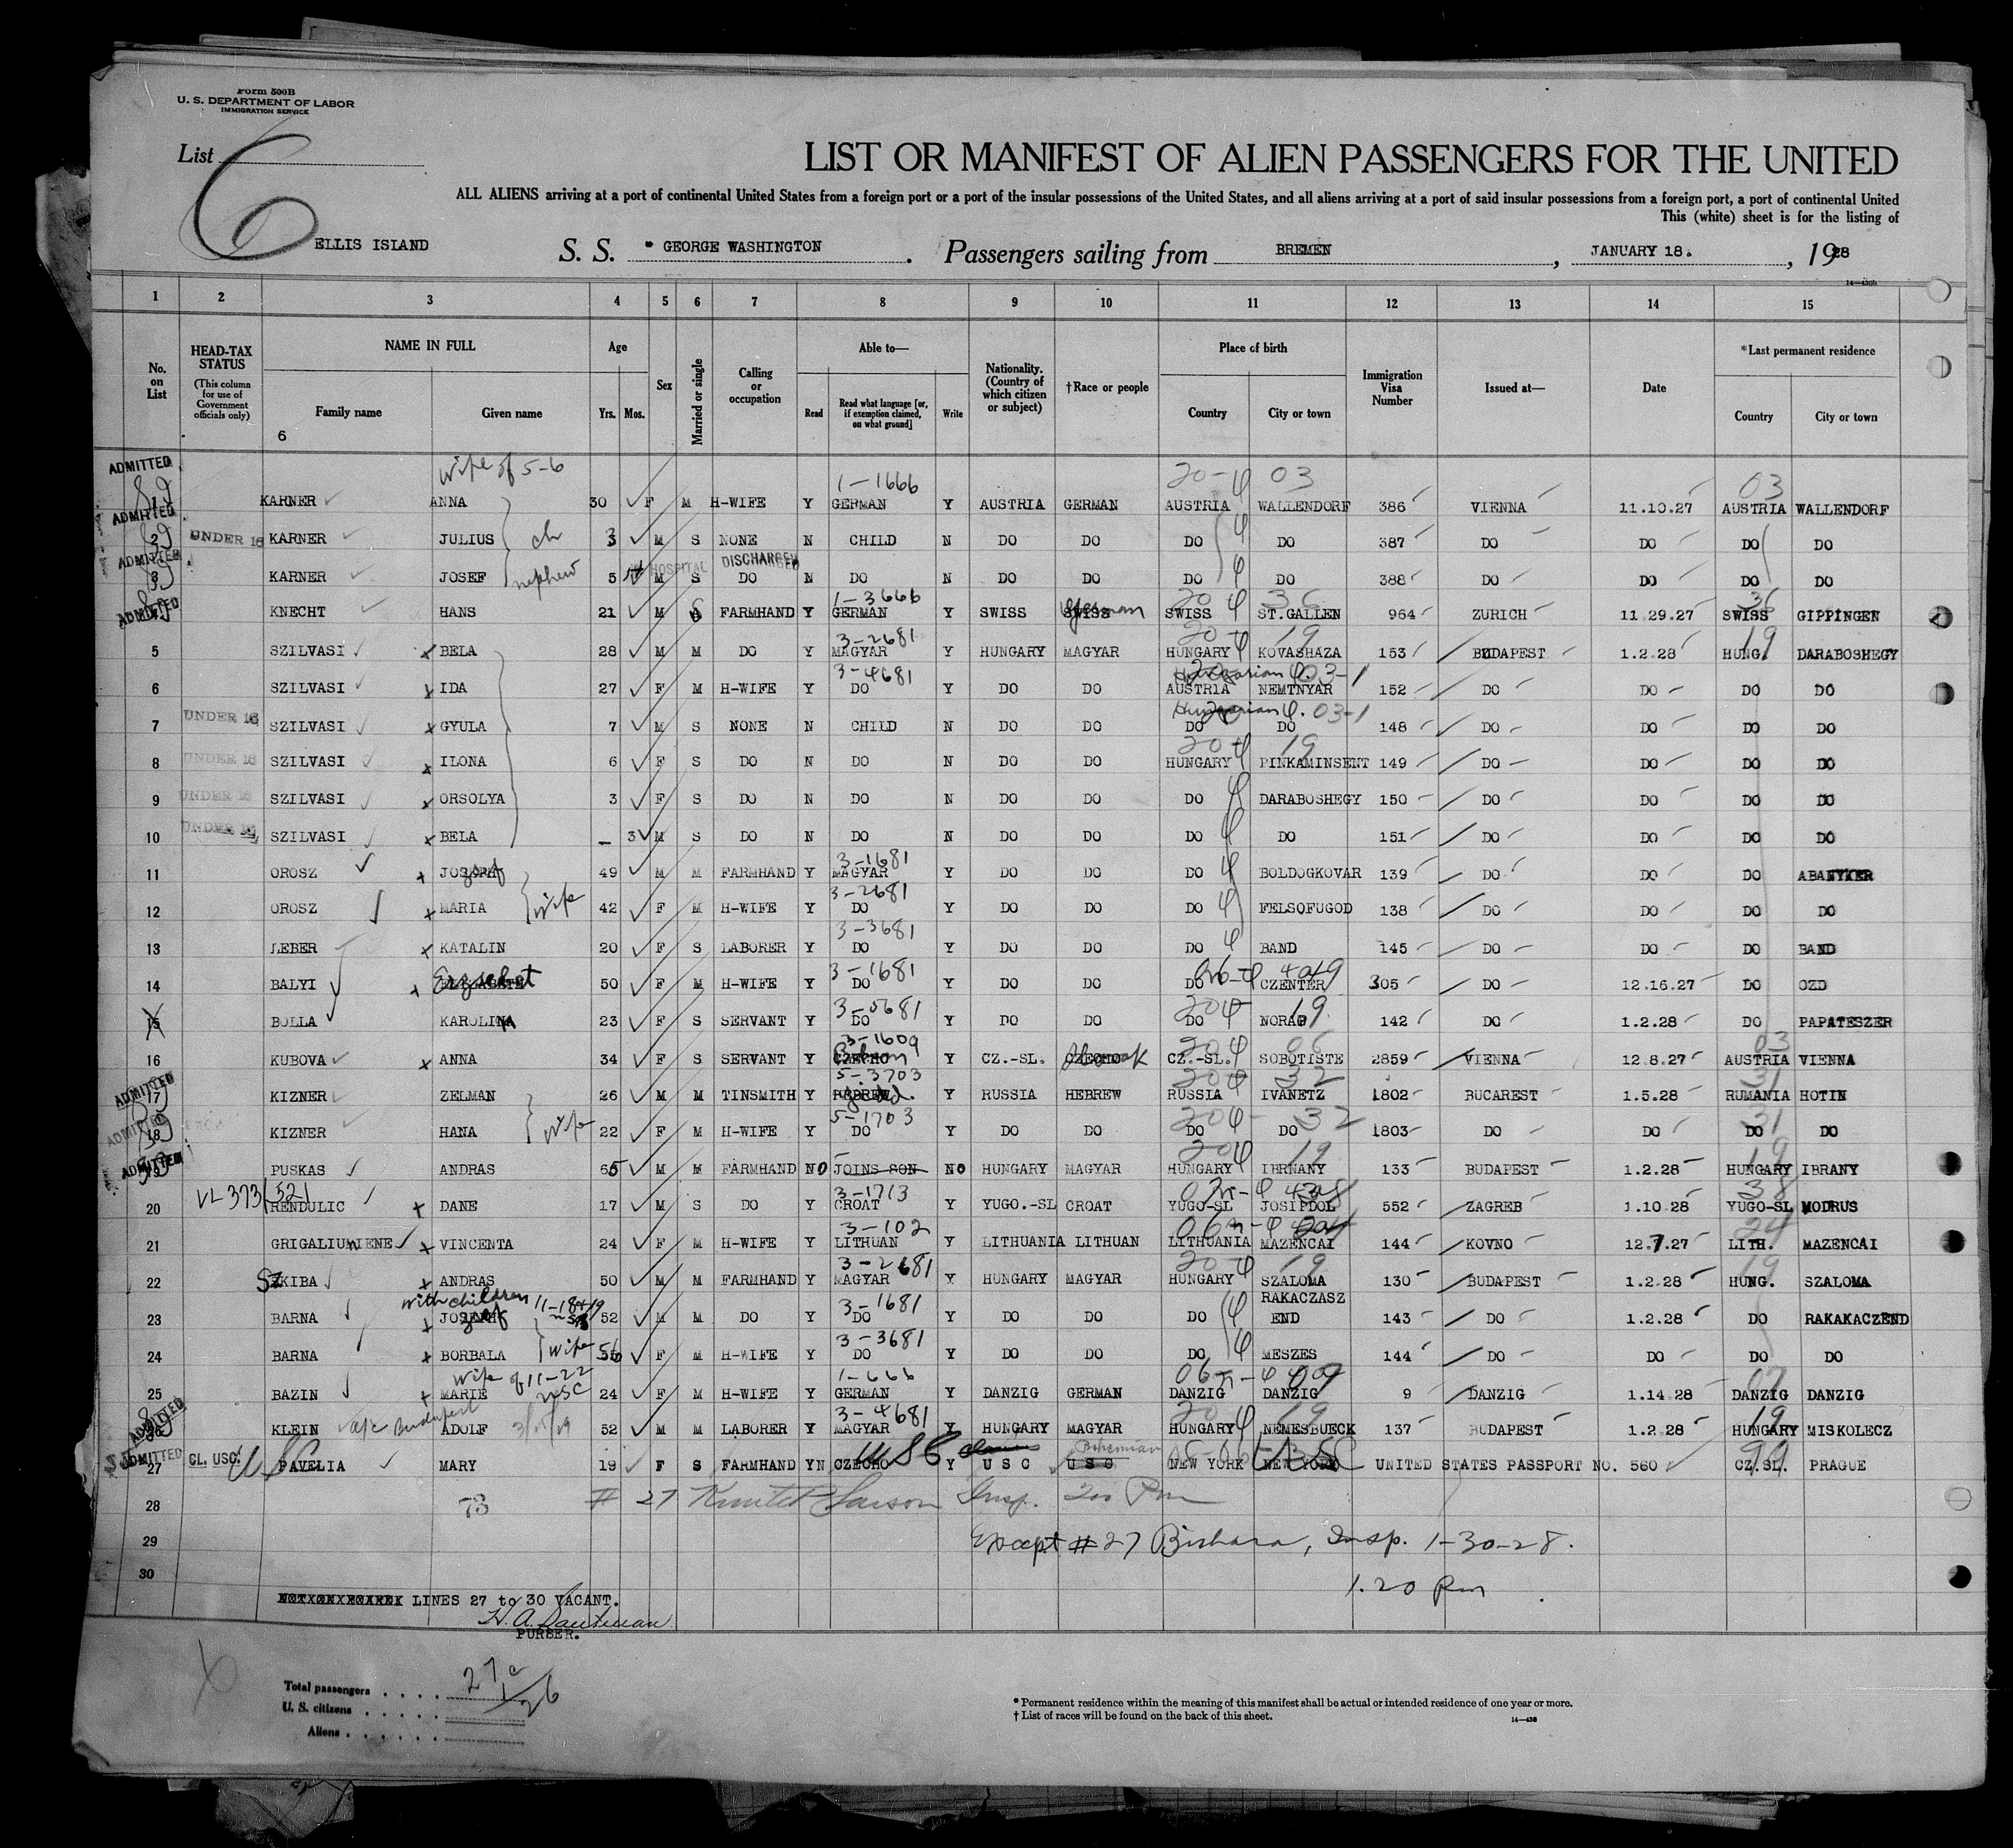 Form 500B
U. S. DEPARTMENT OF LABOR
IMMIGRATION SERVICE
List 6
LIST OR MANIFEST OF ALIEN PASSENGERS FOR THE UNITED
ALL ALIENS arriving at a port of continental United States from a foreign port or a port of the insular possessions of the United States, and all aliens arriving at a port of said insular possessions from a foreign port, a port of continental United
This (white) sheet is for the listing of
ELLIS ISLAND S. S. " GEORGE WASHINGTON . Passengers sailing from BREMEN , JANUARY 18. , 1928
14-430b
1 2 3 4 5 6 7 8 9 10 11 12 13 14 15
No. on List
HEAD-TAX STATUS (This column for use of Government officials only)
NAME IN FULL Family name Given name
Age Yrs. Mos.
Sex
Married or single
Calling or occupation
Able to— Read Read what language [or, if exemption claimed, on what ground] Write
Nationality. (Country of which citizen or subject)
†Race or people
Place of birth Country City or town
Immigration Visa Number
Issued at—
Date
*Last permanent residence Country City or town
6
ADMITTED wife of 5-6 1-1666 20-φ 03 03
1 KARNER ANNA 30 F M H-WIFE Y GERMAN Y AUSTRIA GERMAN AUSTRIA WALLENDORF 386 VIENNA 11.10.27 AUSTRIA WALLENDORF
ADMITTED
2 UNDER 16 KARNER JULIUS ch 3 M S NONE N CHILD N DO DO DO DO 387 DO DO DO DO
ADMITTED HOSPITAL DISCHARGED
3 KARNER JOSEF nephew 5 M S DO N DO N DO DO DO DO 388 DO DO DO DO
ADMITTED 1-3666 20 φ 36 36
4 KNECHT HANS 21 M S FARMHAND Y GERMAN Y SWISS SWISS German SWISS ST.GALLEN 964 ZURICH 11.29.27 SWISS GIPPINGEN
3-2681 20-φ 19 19
5 SZILVASI x BELA 28 M M DO Y MAGYAR Y HUNGARY MAGYAR HUNGARY KOVASHAZA 153 BUDAPEST 1.2.28 HUNG. DARABOSHEGY
3-4681 Hungarian φ 03-1
6 SZILVASI x IDA 27 F M H-WIFE Y DO Y DO DO AUSTRIA NEMTNYAR 152 DO DO DO DO
Hungarian φ. 03-1
7 UNDER 16 SZILVASI x GYULA 7 M S NONE N CHILD N DO DO DO DO 148 DO DO DO DO
20-φ 19
8 UNDER 16 SZILVASI x ILONA 6 F S DO N DO N DO DO HUNGARY PINKAMINSENT 149 DO DO DO DO
9 UNDER 16 SZILVASI x ORSOLYA 3 F S DO N DO N DO DO DO DARABOSHEGY 150 DO DO DO DO
10 UNDER 16 SZILVASI x BELA – 3 M S DO N DO N DO DO DO DO 151 DO DO DO DO
3-1681
11 OROSZ x JOSEPH zsef 49 M M FARMHAND Y MAGYAR Y DO DO DO BOLDOGKOVAR 139 DO DO DO ABANYKER
3-2681
12 OROSZ x MARIA wife 42 F M H-WIFE Y DO Y DO DO DO FELSOFUGOD 138 DO DO DO DO
3-3681
13 LEBER x KATALIN 20 F S LABORER Y DO Y DO DO DO BAND 145 DO DO DO BAND
3-1681
14 BALYI x Erzsebet 50 F M H-WIFE Y DO Y DO DO DO CZENTER 305 DO 12.16.27 DO OZD
3-5681 20φ 19
15 BOLLA KAROLINA 23 F S SERVANT Y DO Y DO DO DO NORAP 142 DO 1.2.28 DO PAPATESZER
3-1609 20φ 06 03
16 KUBOVA x ANNA 34 F S SERVANT Y CZECHO Y CZ.-SL. CZECHO Slovak CZ.-SL. SOBOTISTE 2859 VIENNA 12.8.27 AUSTRIA VIENNA
ADMITTED 5-3703 20φ 32 31
17 KIZNER ZELMAN 26 M M TINSMITH Y HEBREW Y RUSSIA HEBREW RUSSIA IVANETZ 1802 BUCAREST 1.5.28 RUMANIA HOTIN
ADMITTED 5-1703 20φ- 32 31
18 KIZNER HANA wife 22 F M H-WIFE Y DO Y DO DO DO DO 1803 DO DO DO DO
ADMITTED 20φ 19 19
19 PUSKAS ANDRAS 65 M M FARMHAND NO JOINS SON NO HUNGARY MAGYAR HUNGARY IBRNANY 133 BUDAPEST 1.2.28 HUNGARY IBRANY
VL 373/521 3-1713 38
20 RENDULIC x DANE 17 M S DO Y CROAT Y YUGO.-SL CROAT YUGO-SL JOSIPDOL 552 ZAGREB 1.10.28 YUGO-SL MODRUS
3-102 24
21 GRIGALIUNIENE x VINCENTA 24 F M H-WIFE Y LITHUAN Y LITHUANIA LITHUAN LITHUANIA MAZENCAI 144 KOVNO 12.7.27 LITH. MAZENCAI
3-2681 20-φ 19 19
22 SZKIBA x ANDRAS 50 M M FARMHAND Y MAGYAR Y HUNGARY MAGYAR HUNGARY SZALOMA 130 BUDAPEST 1.2.28 HUNG. SZALOMA
with children 11-18+19 3-1681 RAKACZASZ
23 BARNA x JOSEPH zsef 52 M M DO Y DO Y DO DO DO END 143 DO 1.2.28 DO RAKAKACZEND
3-3681
24 BARNA x BORBALA wife 56 F M H-WIFE Y DO Y DO DO DO MESZES 144 DO DO DO DO
wife of 11-22 USC 1-666 07
25 BAZIN x MARIE 24 F M H-WIFE Y GERMAN Y DANZIG GERMAN DANZIG DANZIG 9 DANZIG 1.14.28 DANZIG DANZIG
ADMITTED 3-4681 20 φ 19 19
26 KLEIN ADOLF 52 M M LABORER Y MAGYAR Y HUNGARY MAGYAR HUNGARY NEMESBUECK 137 BUDAPEST 1.2.28 HUNGARY MISKOLECZ
ADMITTED CL. USC. USC Bohemian USC 99
27 PAVELIA MARY 19 F S FARMHAND YN CZECHO Y U S C U S C NEW YORK NEW YORK UNITED STATES PASSPORT NO. 560 CZ.SL. PRAGUE
28 73 # 27 Larson Insp. 200 Pm
29 Except #27 Bishara, Insp. 1-30-28.
30 1.20 Pm
LINES 27 to 30 VACANT.
PURSER.
Total passengers . . . . 27
U. S. citizens . . . . . 1
Aliens . . . . . . 26
* Permanent residence within the meaning of this manifest shall be actual or intended residence of one year or more.
† List of races will be found on the back of this sheet.
14-430